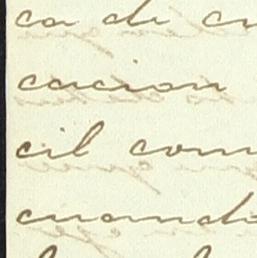 ca de cu
cacion
cil com
cuando